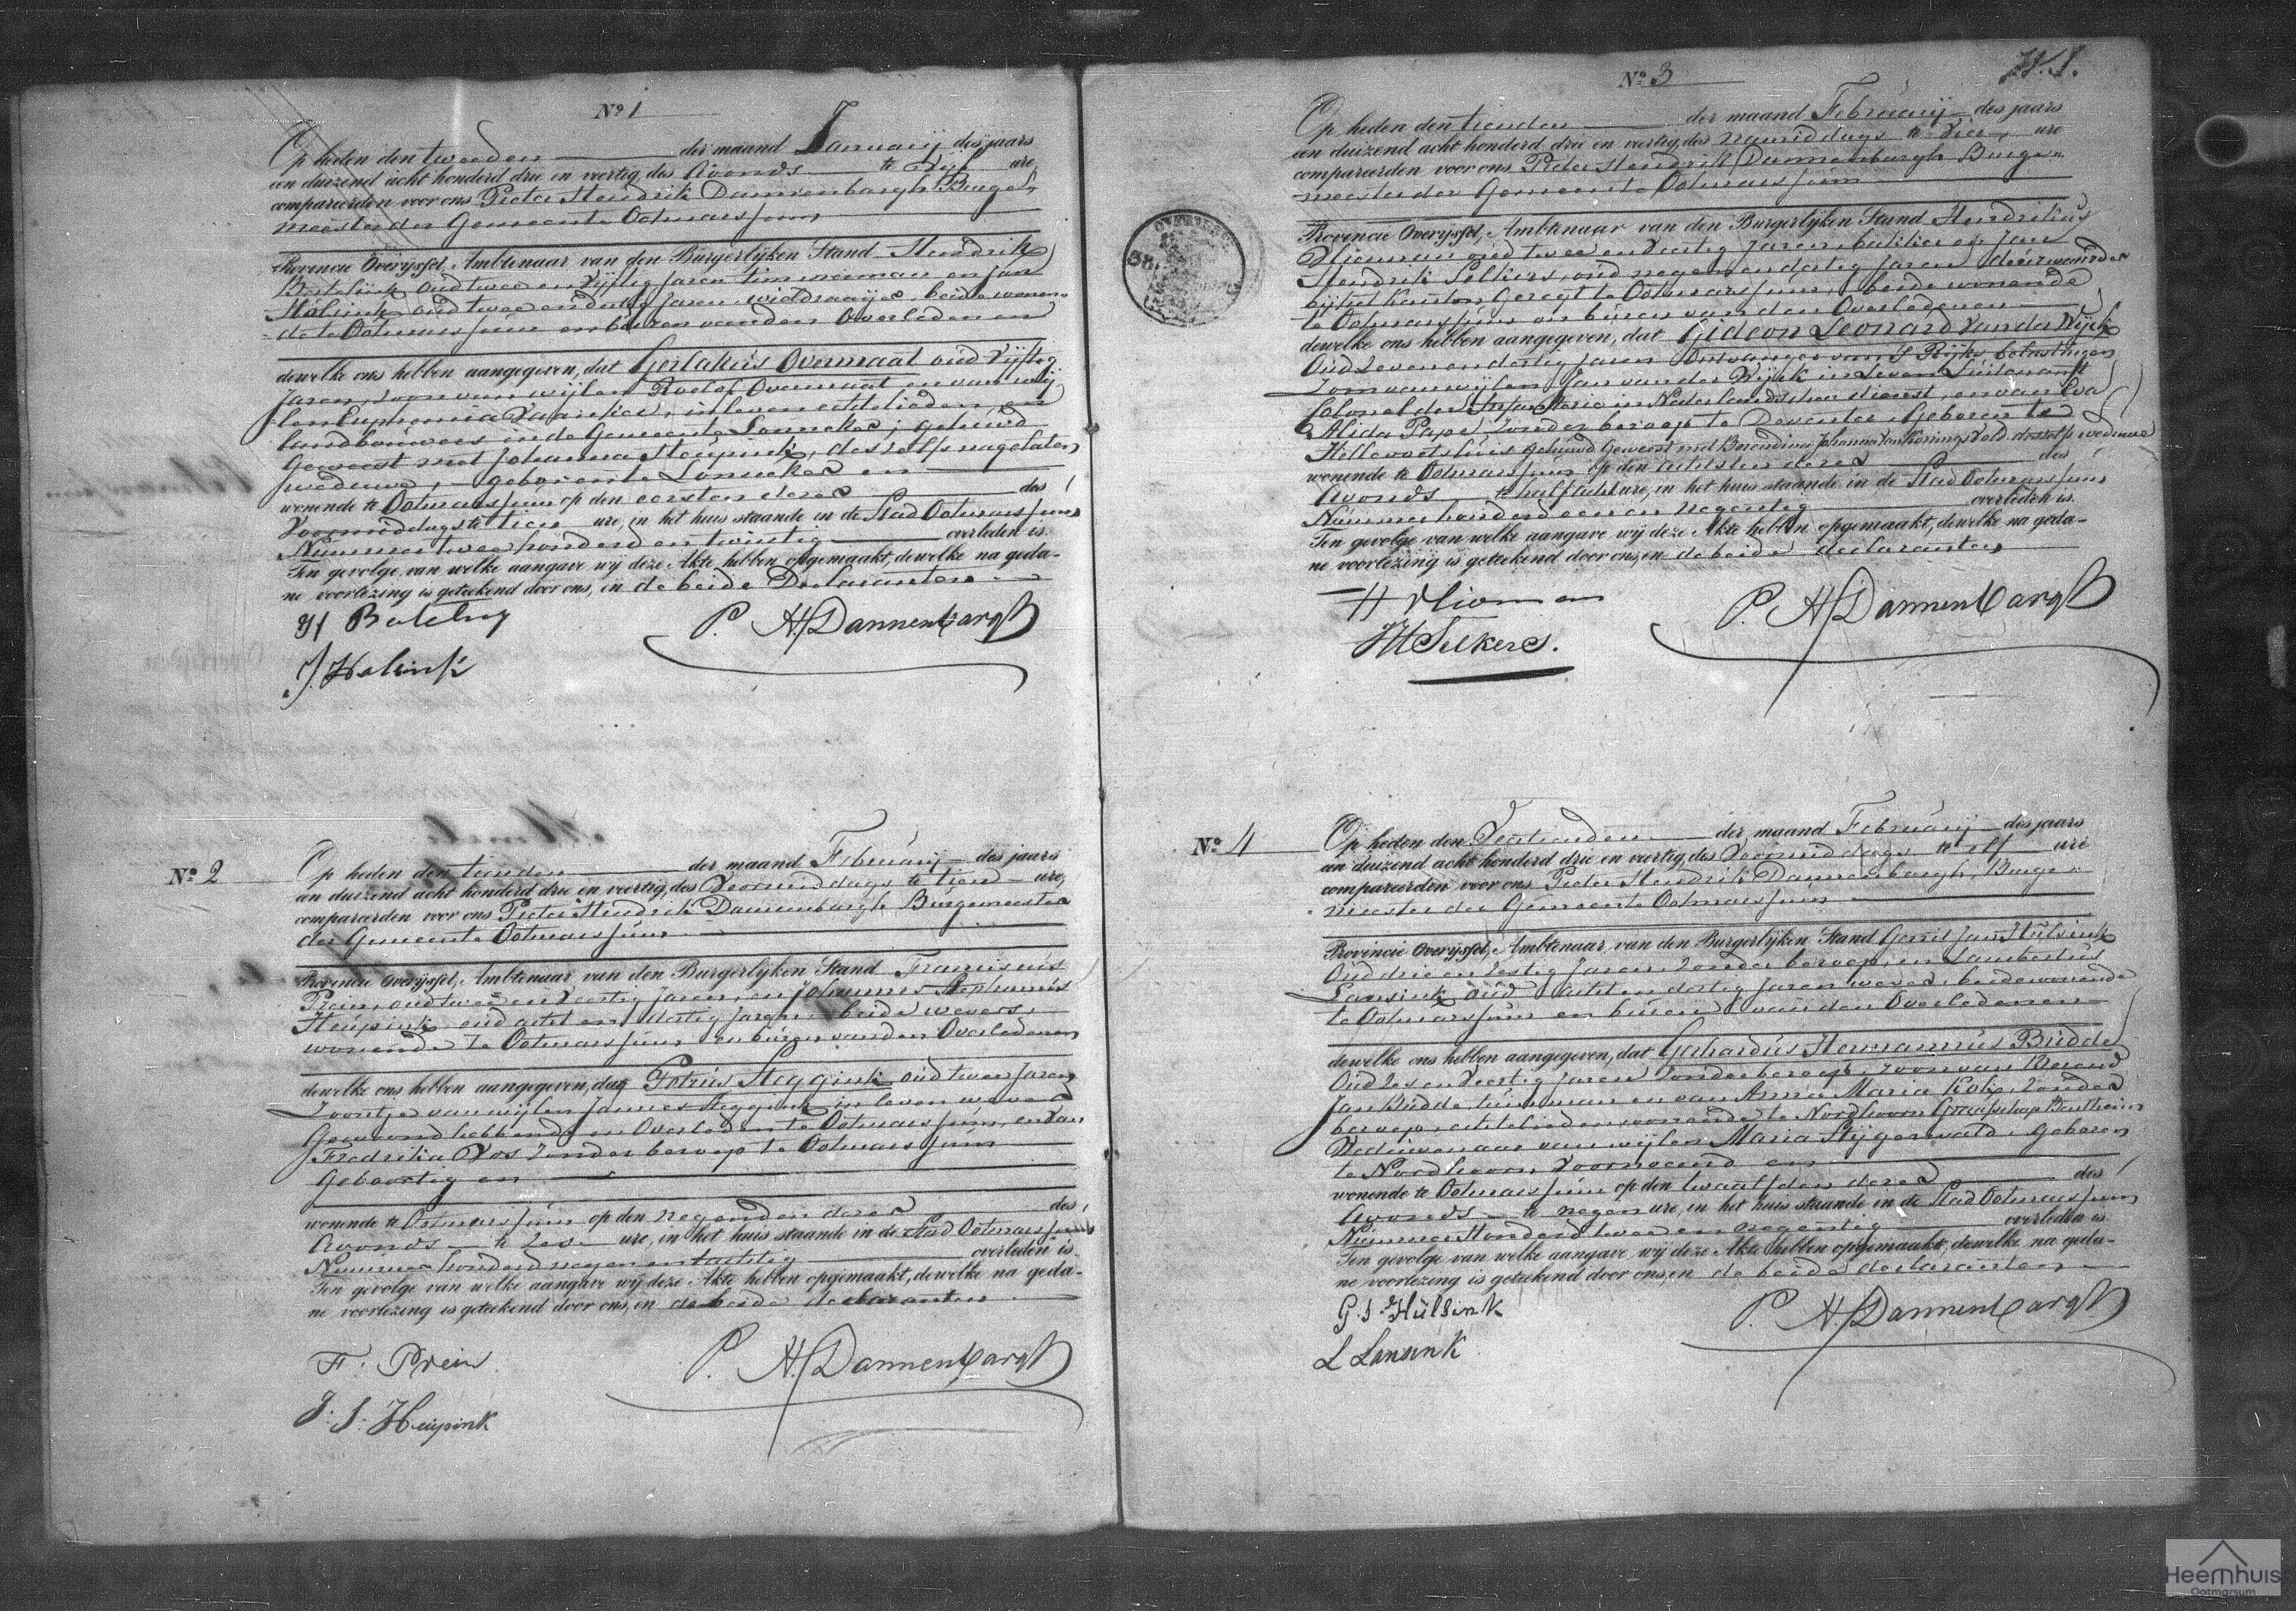 Nº 1
Op heden den tweeden der maand Januarij des jaars
een duizend acht honderd drie en veertig, des Avonds te Vijf ure,
compareerden voor ons Pieter Hendrik Dannenbargh Burge-
meester der Gemeente Ootmarssum
Provincie Overijssel, Ambtenaar van den Burgerlijken Stand Hendrik
oud twee en Vijftig Jaren timmerman en Jan
Holsink oud twee en dertig Jaren wieldraaijer, beide wonen-
de te Ootmarssum en buren van den Overledenen
dewelke ons hebben aangegeven, dat Gerlakus Overmaat oud Vijftig
Jaren, zoon van wijlen Roelof Overmaat en van wij-
len Euphemia Vaanties, in leven echtelieden en
landbouwers in de Gemeente Lonneker; gehuwd
Geweest met Johanna Heupink, deszelfs nagelaten
weduwe, geboren te Lonneker en
wonende te Ootmarssum op den eersten dezer des
Voormiddags te tien ure, in het huis staande in de Stad Ootmarssum
Nummer twee honderd en twintig overleden is.
Ten gevolge van welke aangave wij deze Akte hebben opgemaakt, dewelke na geda-
ne voorlezing is geteekend door ons, en de beide Declaranten
P. H. Dannenbargh
J. Holsink
Nº 2
Op heden den tienden der maand Februarij des jaars
een duizend acht honderd drie en veertig, des Voormiddags te tien ure,
compareerden voor ons Pieter Hendrik Dannenbargh Burgemeester
der Gemeente Ootmarssum
Provincie Overijssel, Ambtenaar van den Burgerlijken Stand Franciscus
Prein, oud twee en Veertig Jaren, en Johannes Stephanus
Heupink oud acht en dertig Jaren, beide wevers,
wonende te Ootmarssum en buren van den Overledenen
dewelke ons hebben aangegeven, dat Petrus Steggink oud twee Jaren
Zoontje van wijlen Jannes Steggink in leven wever
Gewoond hebbende en Overleden te Ootmarssum, en van
Fredrika Vos zonder beroep te Ootmarssum
Geboortig en
wonende te Ootmarssum op den negenden dezer des
Avonds te zes ure, in het huis staande in de Stad Ootmarssum
Nummer honderd negen en tachtig overleden is.
Ten gevolge van welke aangave wij deze Akte hebben opgemaakt, dewelke na geda-
ne voorlezing is geteekend door ons, en de beide declaranten
F. Prein P. H. Dannenbargh
J. S. Heupink
Nº 3
Op heden den tienden der maand Februarij des jaars
een duizend acht honderd drie en veertig, des namiddags te Vier ure
compareerden voor ons Pieter Hendrik Dannenbargh Burge-
meester der Gemeente Ootmarssum
Provincie Overijssel, Ambtenaar van den Burgerlijken Stand Hendrikus
Nieman oud twee en Veertig Jaren, en Jan
Hendrik oud negen en dertig Jaren deurwaarder
bij het kanton Geregt te Ootmarssum, beide wonende
te Ootmarssum en buren van den Overledenen
dewelke ons hebben aangegeven, dat Gideon Leonard Van der Wijck
Oud zeven en dertig Jaren Ontvanger van 's Rijks belastingen
Zoon van wijlen Jan van der Wijck in Leven Luitenant
Colonel der Infanterie in Nederlandschen dienst, en van Eva
Alida Pape, zonder beroep te Deventer, Geboren te
Hellevoetsluis Gehuwd Geweest met Berendina Johanna Van Konings Veld deszelfs weduwe
wonende te Ootmarssum op den achtsten dezer des
Avonds te half acht ure, in het huis staande in de Stad Ootmarssum
Nummer honderd een en negentig overleden is.
Ten gevolge van welke aangave wij deze Akte hebben opgemaakt, dewelke na geda-
ne voorlezing is geteekend door ons, en de beide declaranten
P. H. Dannenbargh
Nº 4
Op heden den Veertienden der maand Februarij des jaars
een duizend acht honderd drie en veertig, des Voormiddags te elf ure
compareerden voor ons Pieter Hendrik Dannenbargh, Burge-
meester der Gemeente Ootmarssum
Provincie Overijssel, Ambtenaar van den Burgerlijken Stand Gerrit Jan Hulsink
Oud drie en zestig Jaren, zonder beroep, en Lambertus
Lansink oud acht en dertig Jaren wever, beide wonende
te Ootmarssum en buren van den Overledenen
dewelke ons hebben aangegeven, dat Gerhardus Hermannus Budde
Oud zes en Veertig Jaren zonder beroep, zoon van Berend
Jan Budde, tuinman en van Anna Maria zonder
beroep, echtelieden wonende te Nordhoorn Graafschap Bentheim
Weduwenaar van wijlen Maria Stijgerwald, Geboren
te Nordhoorn Voornoemd en
wonende te Ootmarssum op den twaalfden dezer des
Avonds te negen ure, in het huis staande in de Stad Ootmarssum
Nummer Honderd twee en negentig overleden is.
Ten gevolge van welke aangave wij deze Akte hebben opgemaakt, dewelke na geda-
ne voorlezing is geteekend door ons, en de beide declaranten
G. J. Hulsink P. H. Dannenbargh
L Lansink
Heemhuis
Ootmarsum